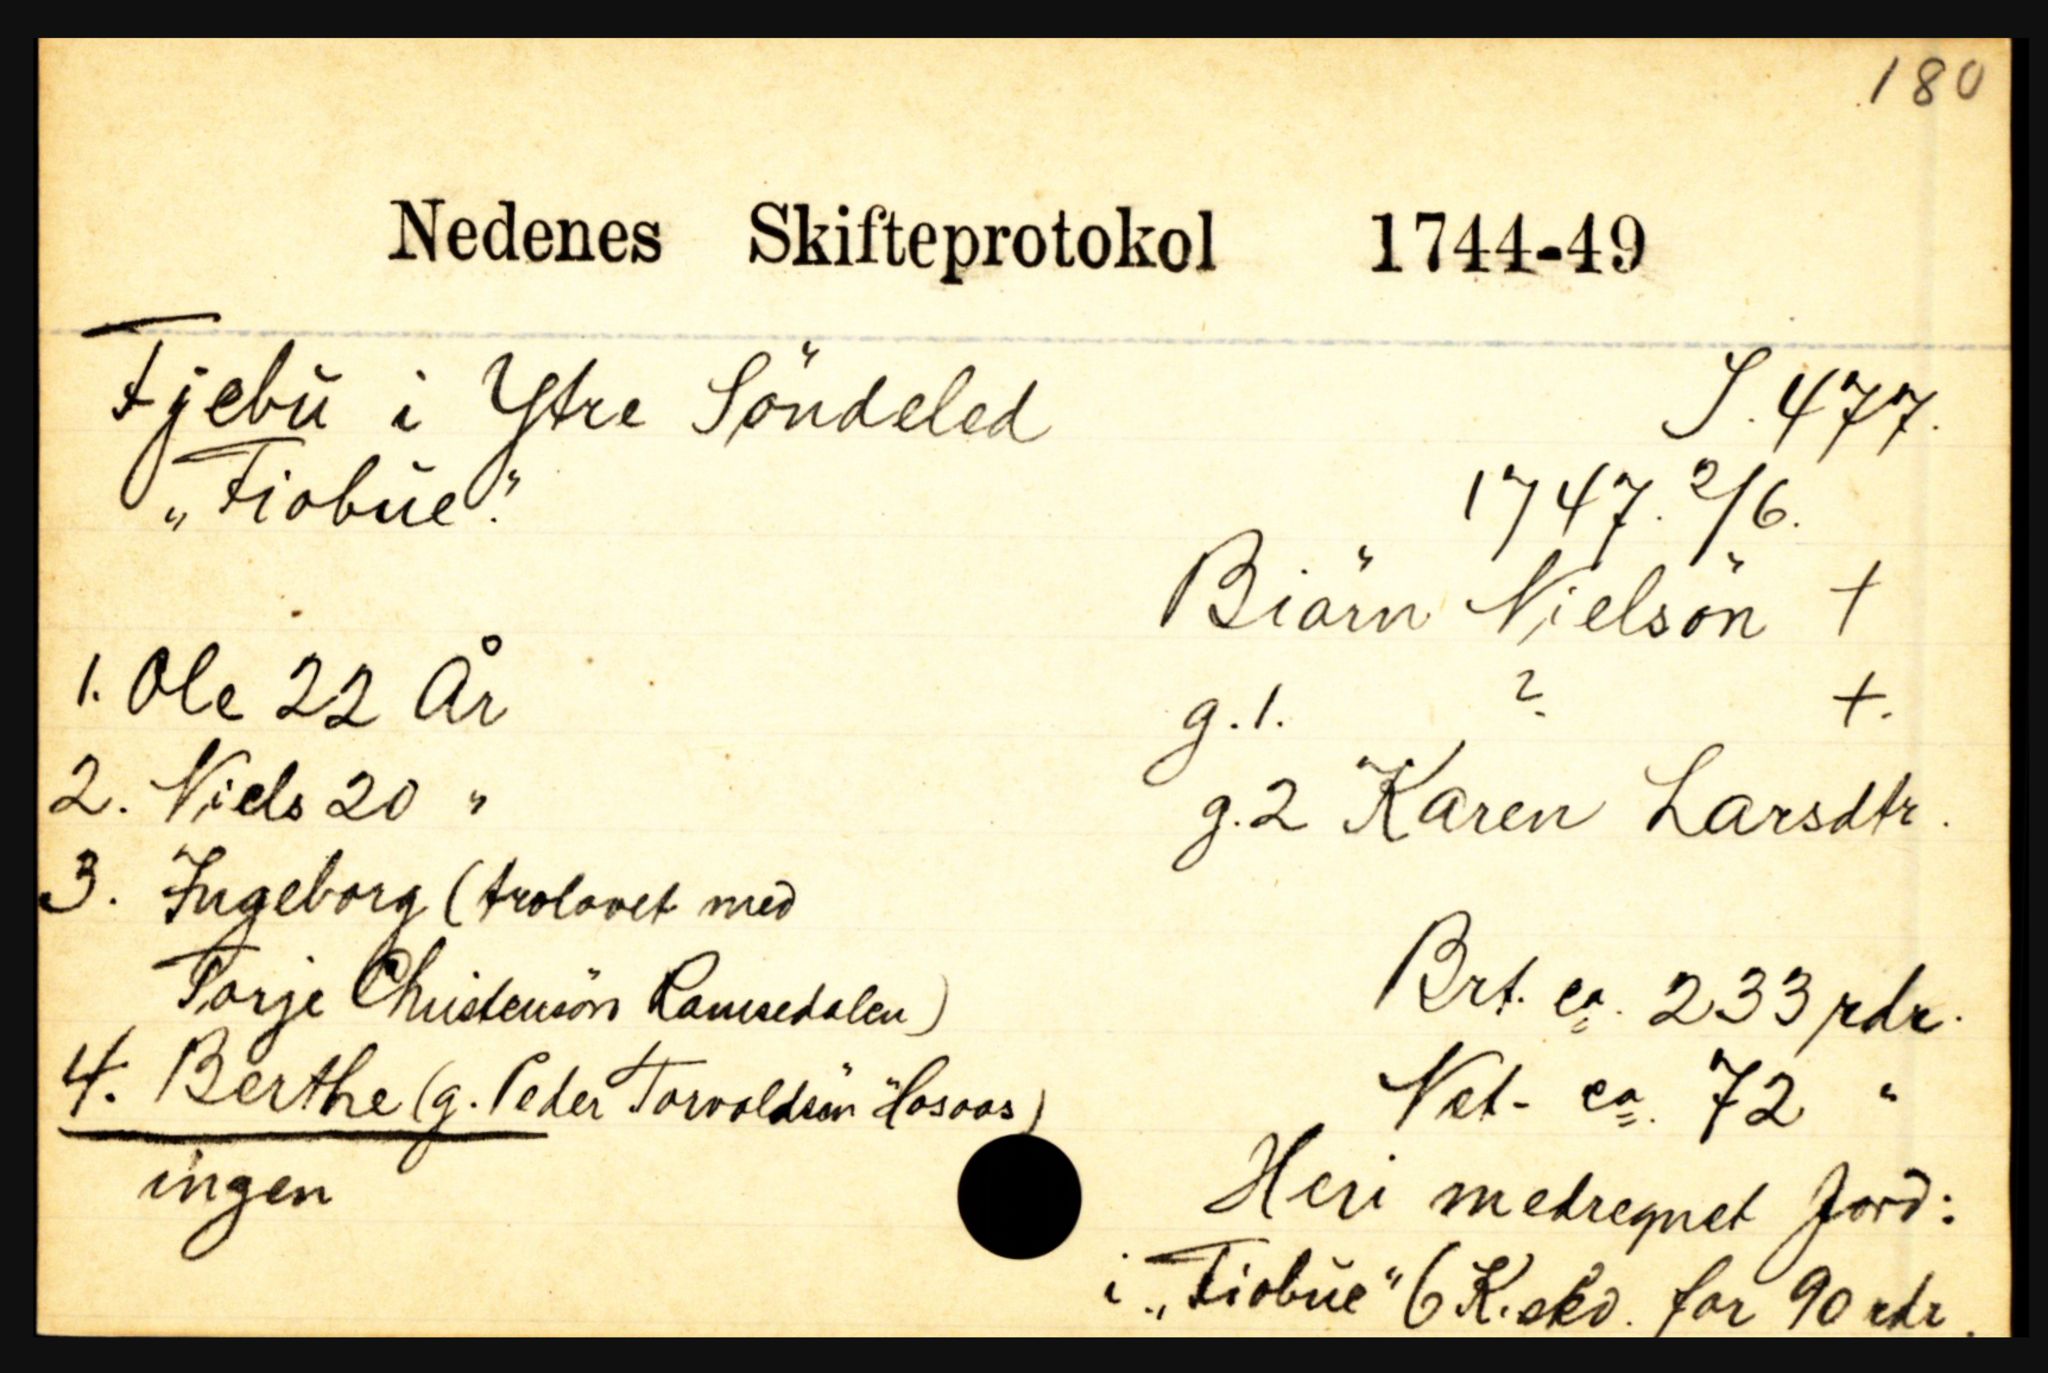 180
Nedenes Skifteprotokol 1744-49
Fjebu i Ytre Söndeled S. 477.
„Fiobue". 1747. 2/6.
Biörn Nielsön +
1. Ole 22 År g. 1. ? +.
2. Niels 20 " g. 2 Karen Larsdtr.
3. Ingeborg (trolovet med
Torje Christensön Ramsedalen) Brt. ca. 233 rdr.
4. Berthe (g. Peder Torvoldsön Hosaas) Net- ca. 72 "
ingen Heri medregnet Jord:
i „Fiobue" 6 K.skd. for 90 rdr.